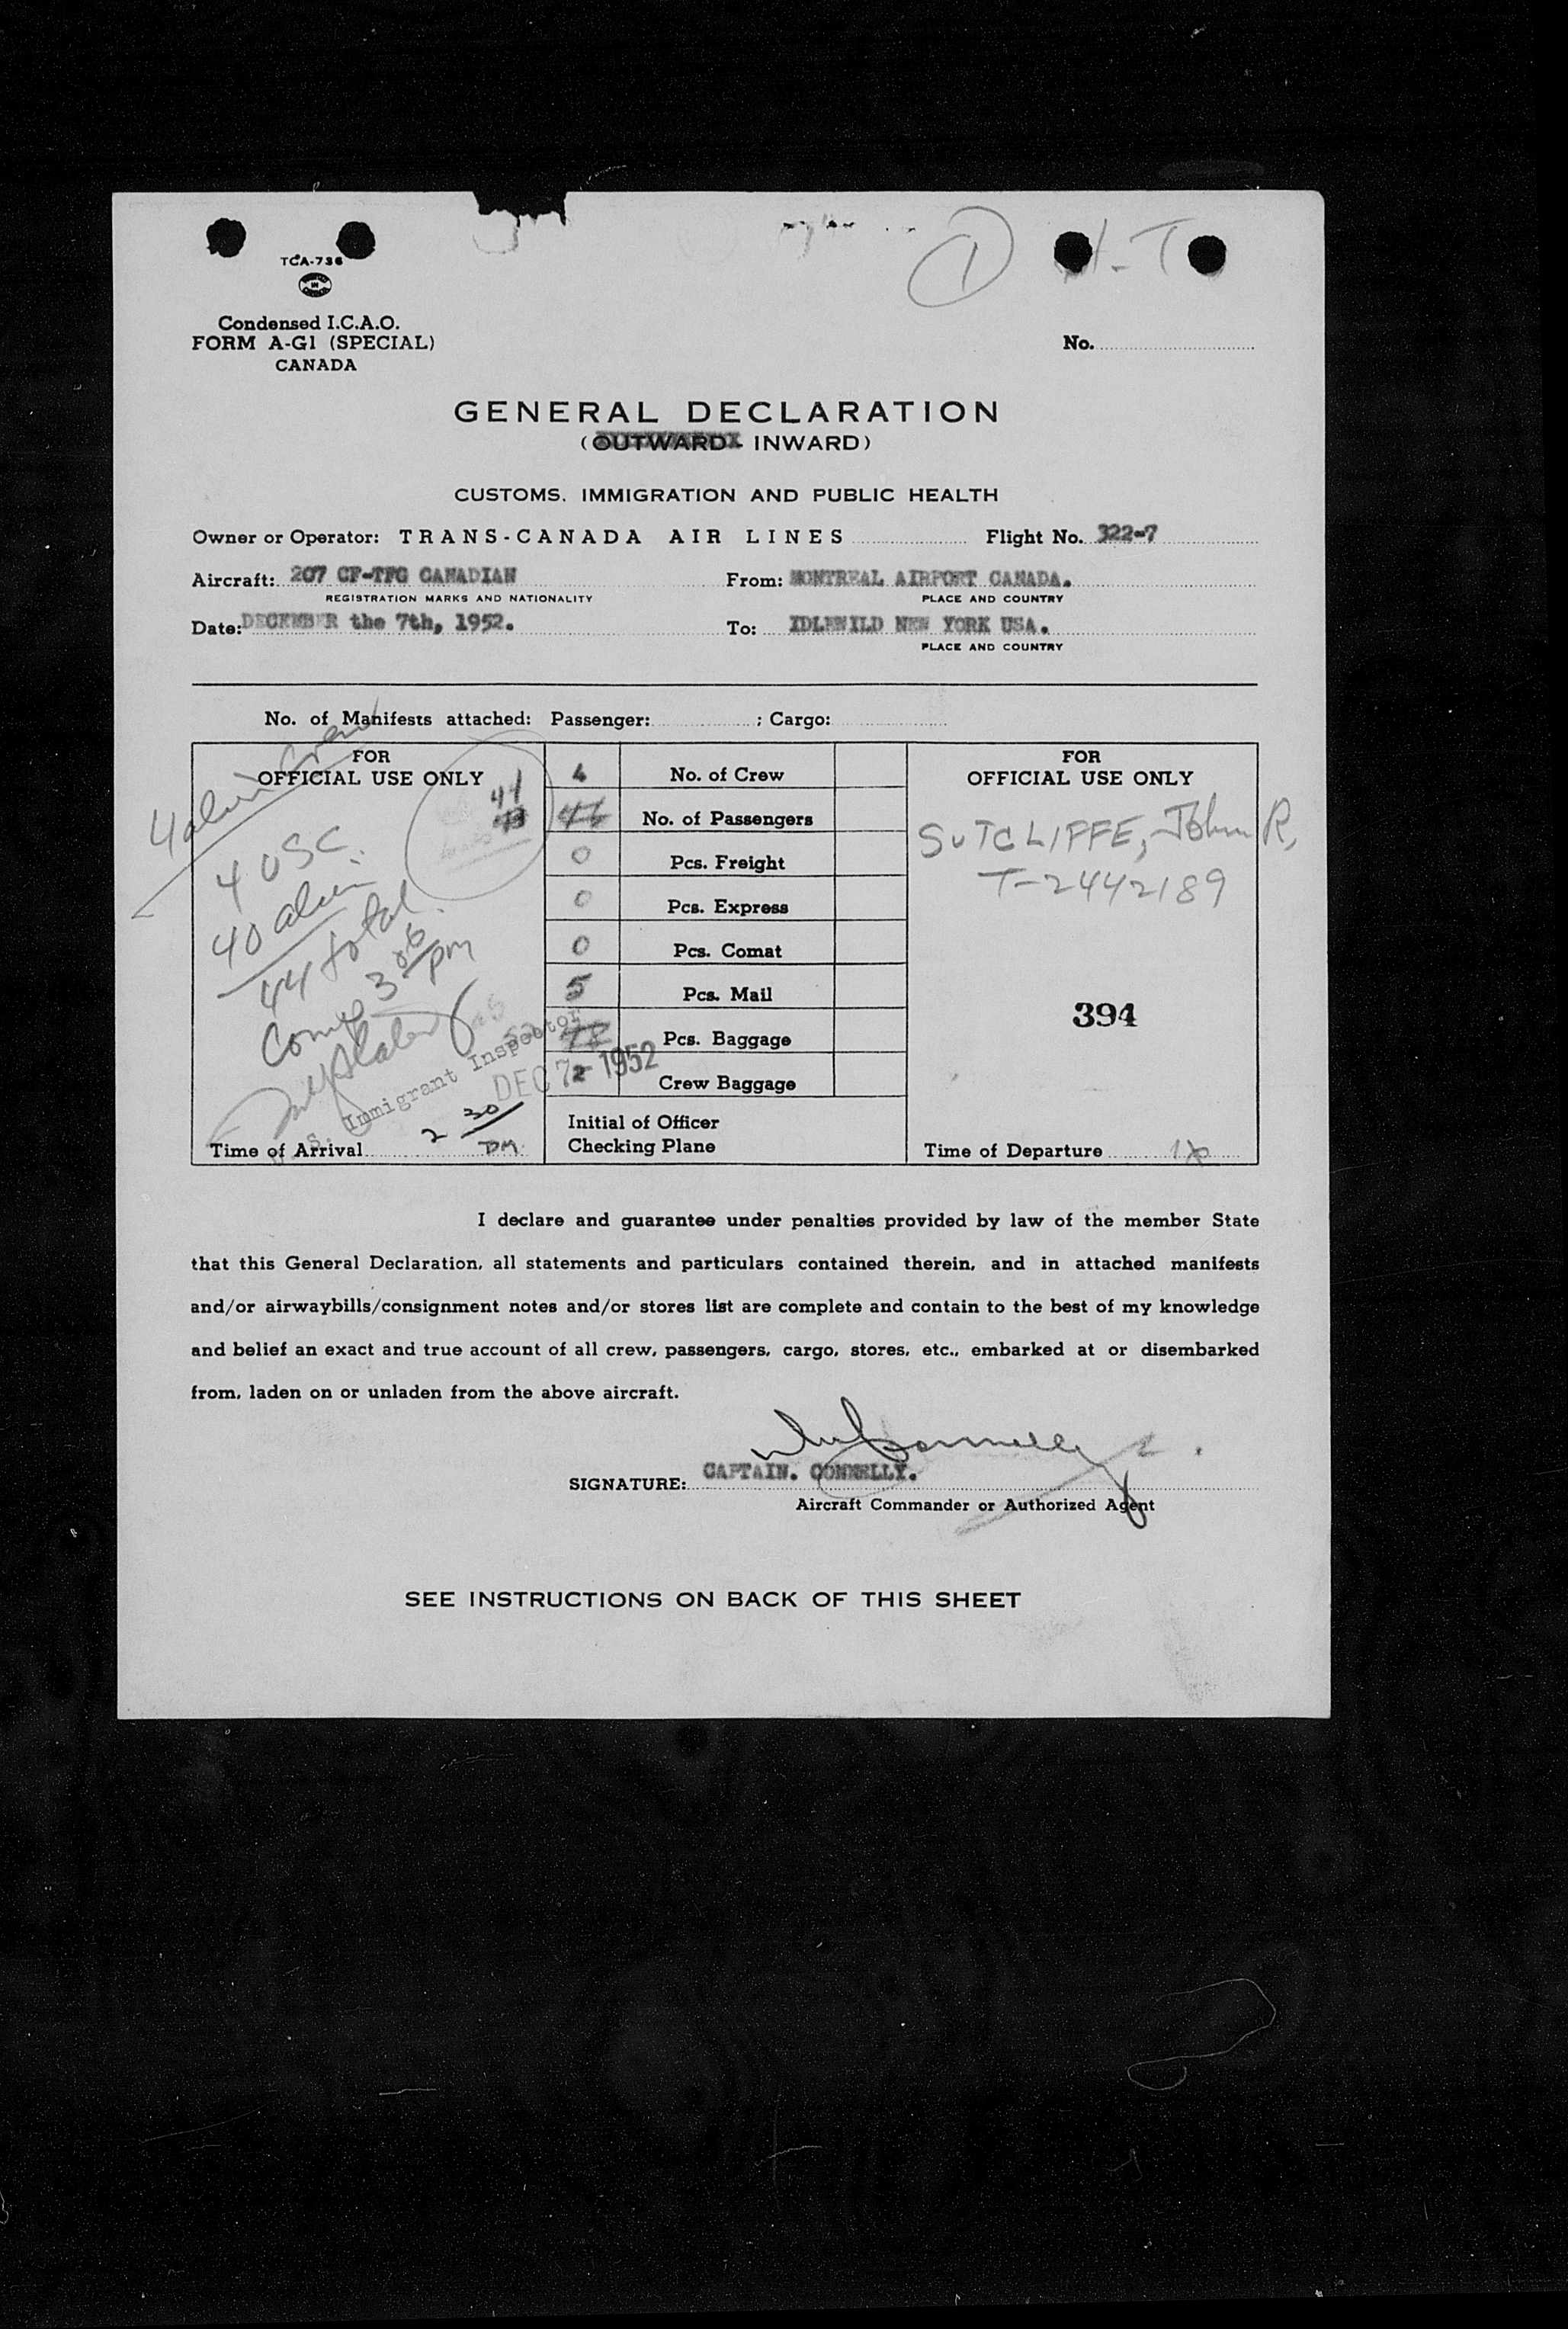 1
TCA-736
Condensed I.C.A.O.
FORM A-G1 (SPECIAL)
CANADA
No.
GENERAL DECLARATION
(OUTWARD - INWARD)
CUSTOMS, IMMIGRATION AND PUBLIC HEALTH
Owner or Operator: TRANS-CANADA AIR LINES Flight No. 322-7
Aircraft: 207 CF-TFG CANADIAN From: MONTREAL AIRPORT CANADA.
REGISTRATION MARKS AND NATIONALITY PLACE AND COUNTRY
Date: DECEMBER the 7th, 1952. To: IDLEWILD NEW YORK USA.
PLACE AND COUNTRY
No. of Manifests attached: Passenger: ; Cargo:
FOR
OFFICIAL USE ONLY
4 alien crew
44
4 USC
40 alien
44 total
Comp 3 06 pm
Immigrant Inspector
DEC 7 - 1952
Time of Arrival 2 30 PM
4 No. of Crew
No. of Passengers
0 Pcs. Freight
0 Pcs. Express
0 Pcs. Comat
5 Pcs. Mail
Pcs. Baggage
2 Crew Baggage
Initial of Officer
Checking Plane
FOR
OFFICIAL USE ONLY
SUTCLIFFE, John R,
T-2442189
394
Time of Departure
I declare and guarantee under penalties provided by law of the member State
that this General Declaration, all statements and particulars contained therein, and in attached manifests
and/or airwaybills/consignment notes and/or stores list are complete and contain to the best of my knowledge
and belief an exact and true account of all crew, passengers, cargo, stores, etc., embarked at or disembarked
from, laden on or unladen from the above aircraft.
SIGNATURE: CAPTAIN. CONNELLY.
Aircraft Commander or Authorized Agent
SEE INSTRUCTIONS ON BACK OF THIS SHEET